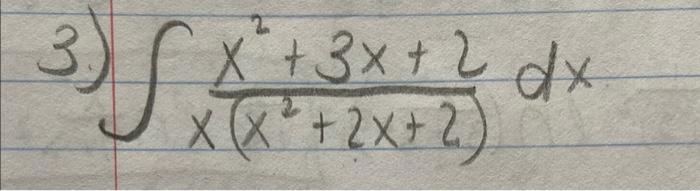 3.) ∫ x² + 3x + 2 / x(x² + 2x + 2) dx